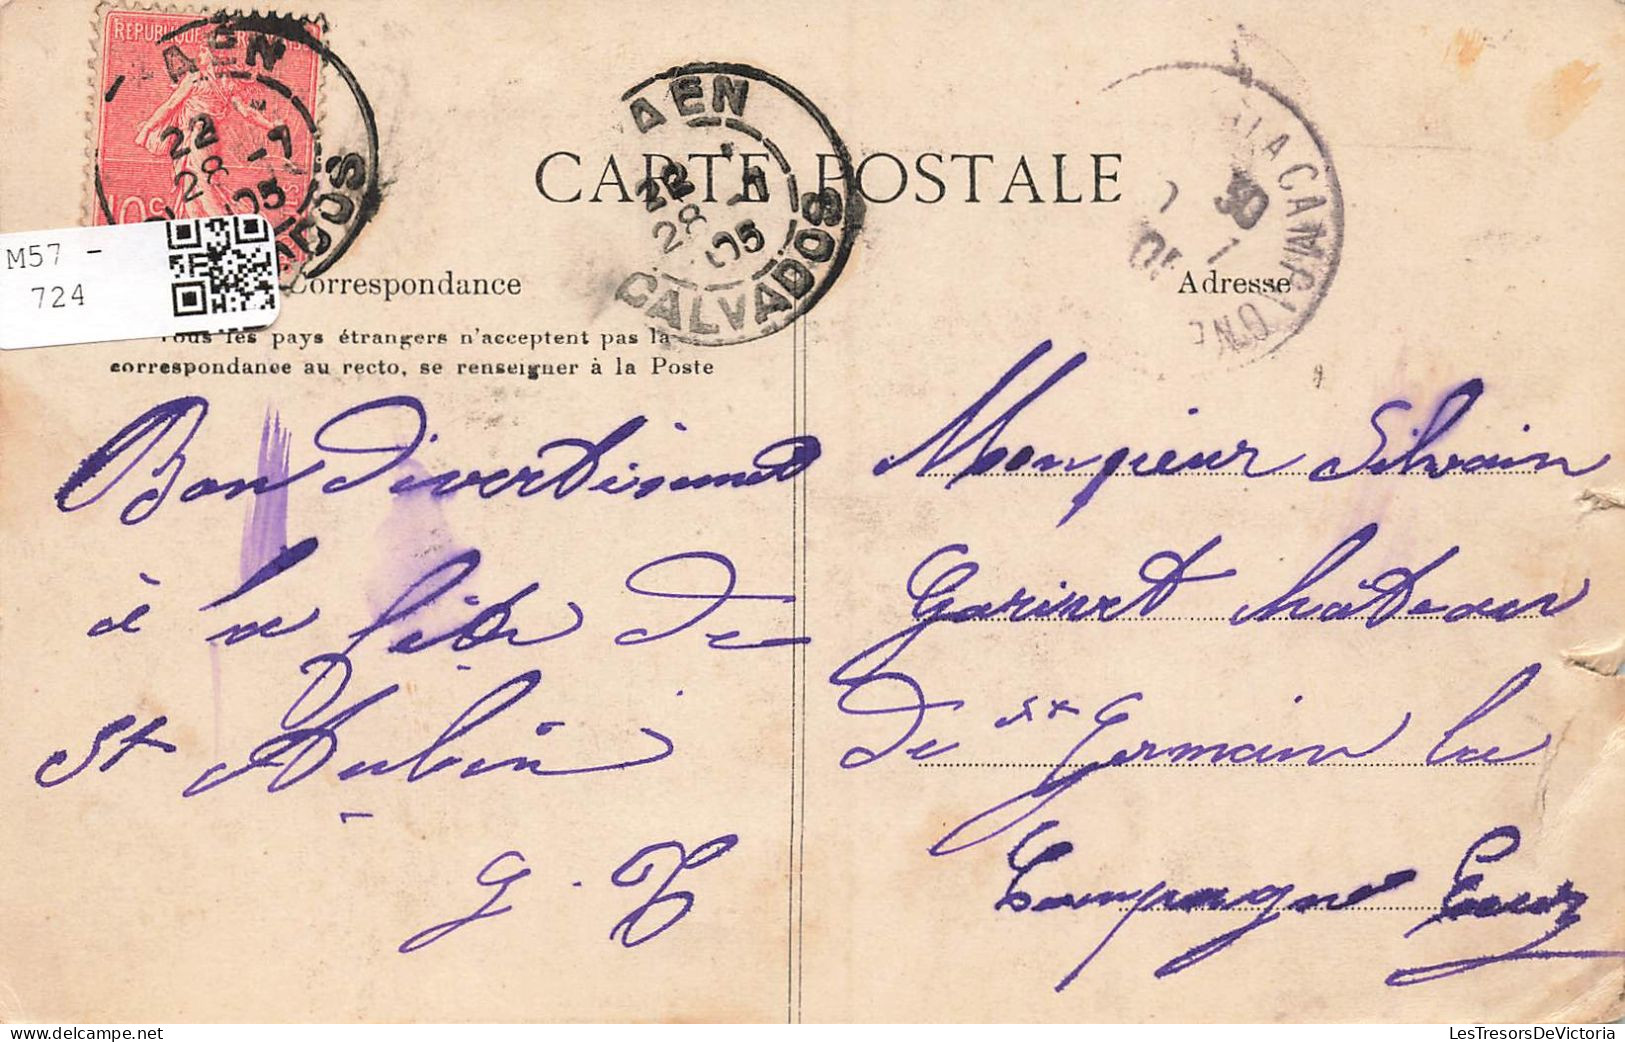 REPUBLIQUE FRANCAISE
10c
CAEN
22
28 -7
05
CALVADOS
AEN
22
28 -7
05
CALVADOS
LA CAMPAGNE
30
7
05
CARTE POSTALE
M57 -
724
Correspondance
Adresse
Tous les pays étrangers n'acceptent pas la
correspondance au recto, se renseigner à la Poste
Bon divertissement
à la fête de
St Aubin
G. T
Monsieur Silvain
Garinet château
de St Germain la
Campagne Eure
LesTresorsDeVictoria